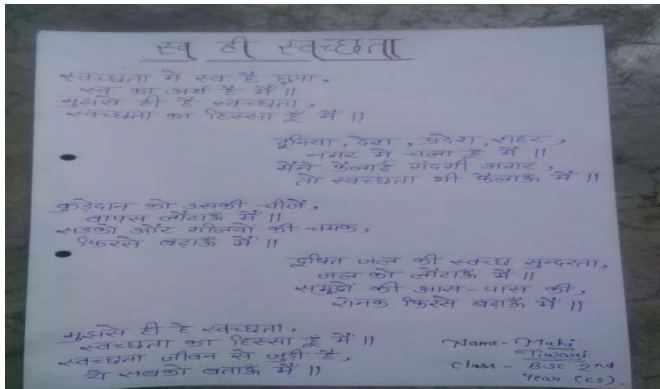 स्व ही स्वच्छता
स्वच्छता मे स्व है छुपा,
स्व का अर्थ है मैं ||
मुझसे ही है स्वच्छता,
स्वच्छता का हिस्सा हूँ मैं ||
दुनिया, देश, प्रदेश, शहर,
नगर मे चला हूँ मैं ||
मैंने फैलाई गंदगी अगर,
तो स्वच्छता भी फैलाऊँ मैं ||
कूड़ेदान को उसकी चीजें,
वापस लौटाऊँ मैं ||
सड़को और गलियों की चमक,
फिरसे बढ़ाऊँ मैं ||
दूषित जल की स्वच्छ सुन्दरता,
जल को लौटाऊँ मैं ||
समुद्रो की आस-पास की,
रोनक फिरसे बढ़ाऊँ मैं ||
मुझसे ही है स्वच्छता,
स्वच्छता का हिस्सा हूँ मैं ||
स्वच्छता जीवन से जुड़ी है,
ये सबको बताऊँ मैं ||
Name- Mahi
Tiwari
Class - B.SC 2nd
Year (CS).